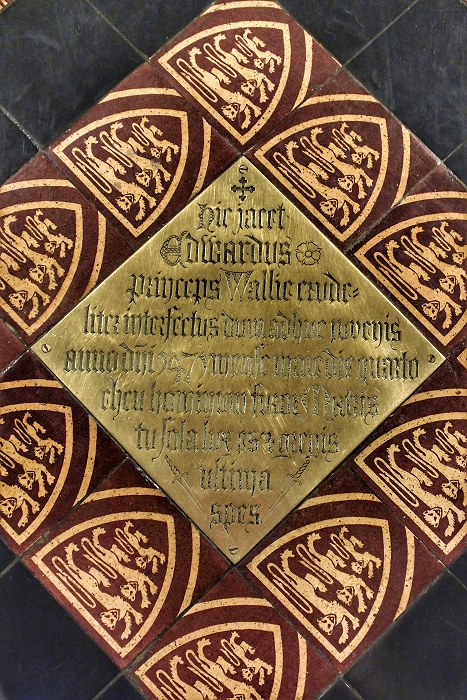 Hic jacet
Edwardus
princeps Wallie crude-
liter interfectus dum adhuc juvenis
anno dñi 1471 mense maie die quarto
eheu hominum furor Matris
tu sola lux es & gregis
ultima
spes